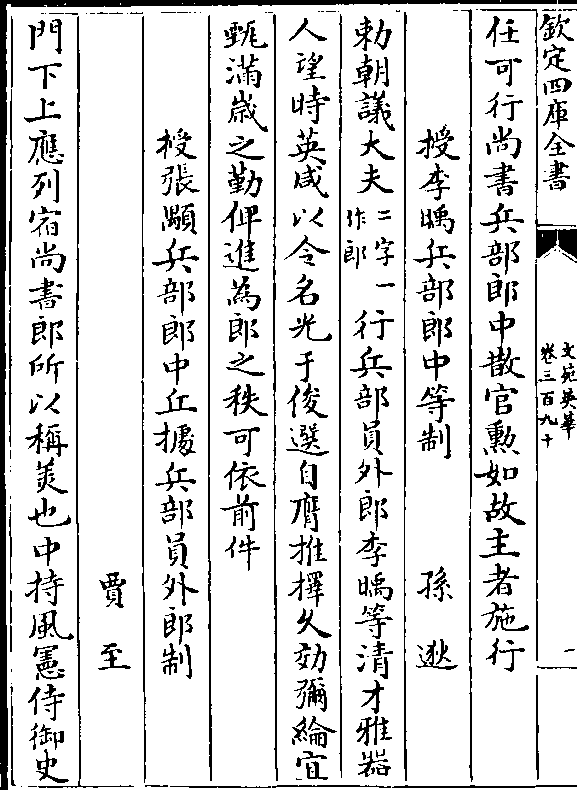 欽定四庫全書
文苑英華
卷三百九十
一
任可行尚書兵部郎中散官勲如故主者施行
授李暠兵部郎中等制　孫逖
勅朝議大夫二字一作郎行兵部員外郎李暠等清才雅器
人望時英咸以令名光于俊選自膺推擇久効彌綸宜
甄滿嵗之勤俾進為郎之秩可依前件
授張顒兵部郎中丘據兵部員外郎制
賈至
門下上應列宿尚書郎所以稱美也中持風憲侍御史